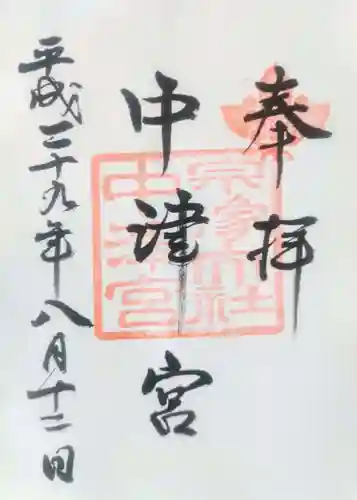 奉拝
中津宮
宗像大社
中津宮
平成二十九年八月十二日